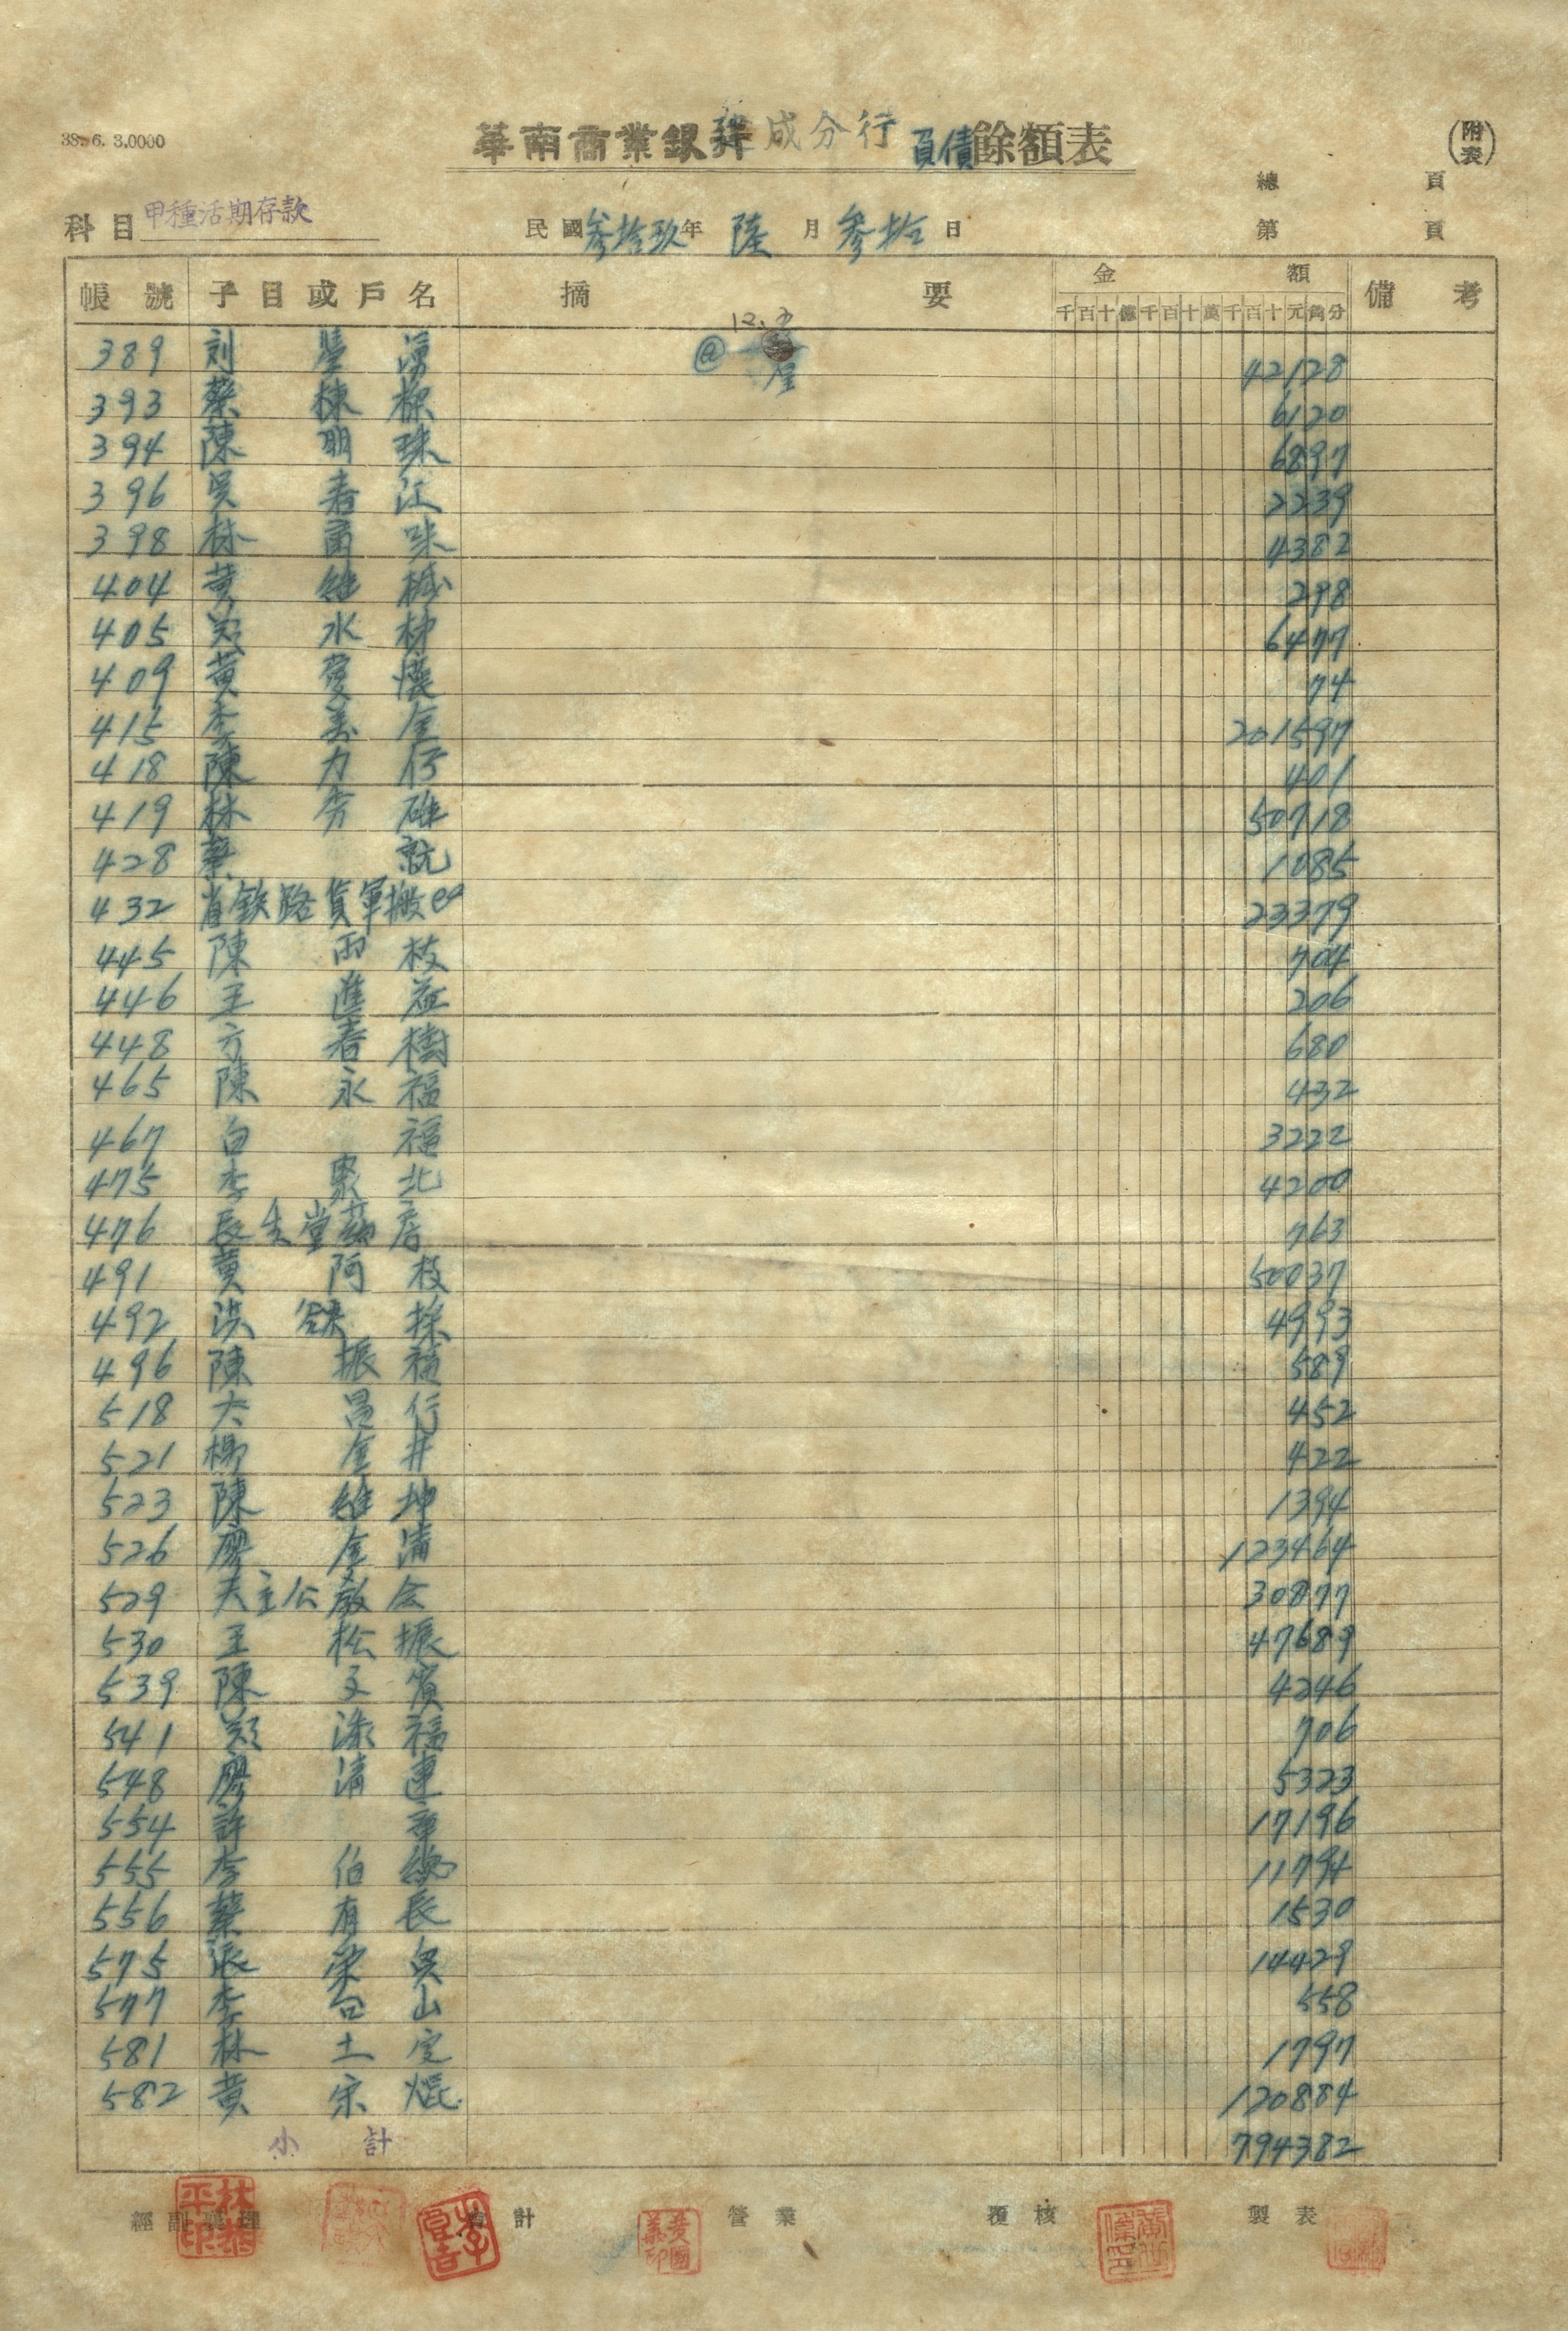 38. 6. 3.0000
華南商業銀 成分行 負債餘額表
(附表)
總 頁
科目 甲種活期存款 民國 叁拾玖 年 陸 月 叁拾 日 第 頁
帳號 子目或戶名 摘要 金額 備考
千百十億千百十萬千百十元角分
389 刘 湧 42128
393 蔡棟樑 6120
394 陳明珠 6897
396 吳春江 2239
398 林 味 4382
404 黃継 298
405 鄭水梯 6477
409 黃愛懷 74
415 李 金 201597
418 陳力仔 401
419 林 雄 50718
428 蔡就 1085
432 肖鉄路貨軍搬 23379
445 陳雨枝 704
446 王進益 206
448 方春樹 680
465 陳永福 432
467 白福 3222
475 李聚北 4200
476 長生堂葯房 763
491 黃阿枝 50037
492 洪 採 4993
496 陳振福 589
518 大昌行 452
521 楊金井 422
523 陳維坤 1394
526 廖金清 123464
529 天主公教会 30877
530 王松振 47689
539 陳文賓 4246
541 鄭添福 706
548 廖清連 5323
554 許章 17196
555 李伯 11794
556 蔡有長 1530
575 張榮 14429
577 李 山 558
581 林土定 1797
582 黃宗焜 120884
小計 794382
經副襄理 會計 營業 覆核 製表